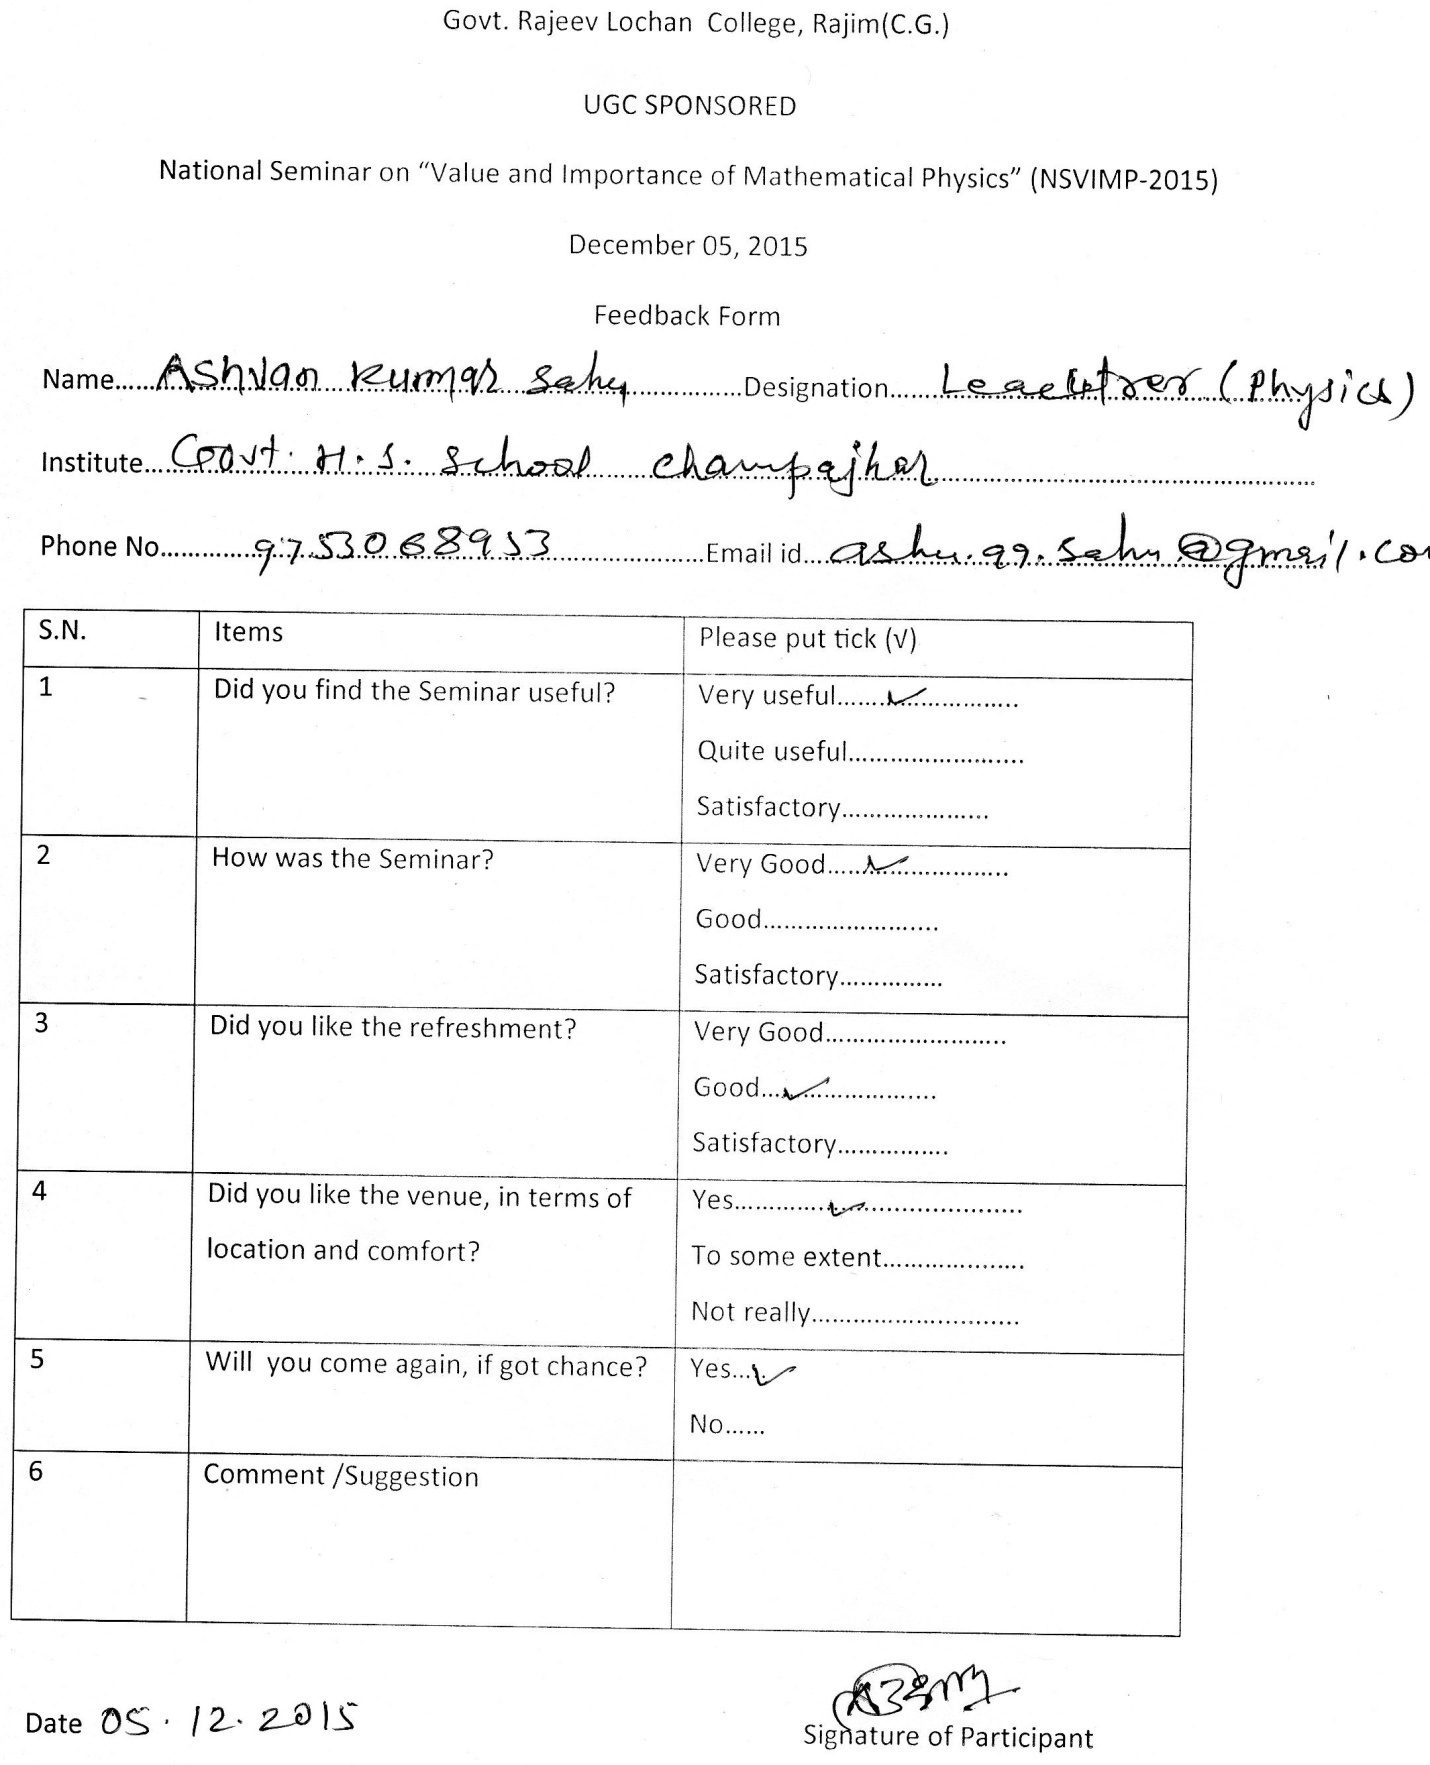 Govt. Rajeev Lochan College, Rajim(C.G.)
UGC SPONSORED
National Seminar on “Value and Importance of Mathematical Physics” (NSVIMP-2015)
December 05, 2015
Feedback Form
Name......Ashvan Kumar Sahu..............Designation.......(Physics)
Institute...Govt. H.S. School Champajhar..........................................
Phone No..............9753068953....................Email id....ashu.99.sahu@gmail.co
S.N. Items Please put tick (√)
1 Did you find the Seminar useful? Very useful.......✓.................
Quite useful..........................
Satisfactory......................
2 How was the Seminar? Very Good.....✓..................
Good..........................
Satisfactory...............
3 Did you like the refreshment? Very Good...........................
Good...✓...................
Satisfactory................
4 Did you like the venue, in terms of Yes.............✓.......................
location and comfort? To some extent.....................
Not really...............................
5 Will you come again, if got chance? Yes...✓
No......
6 Comment /Suggestion
Date 05.12.2015
Signature of Participant